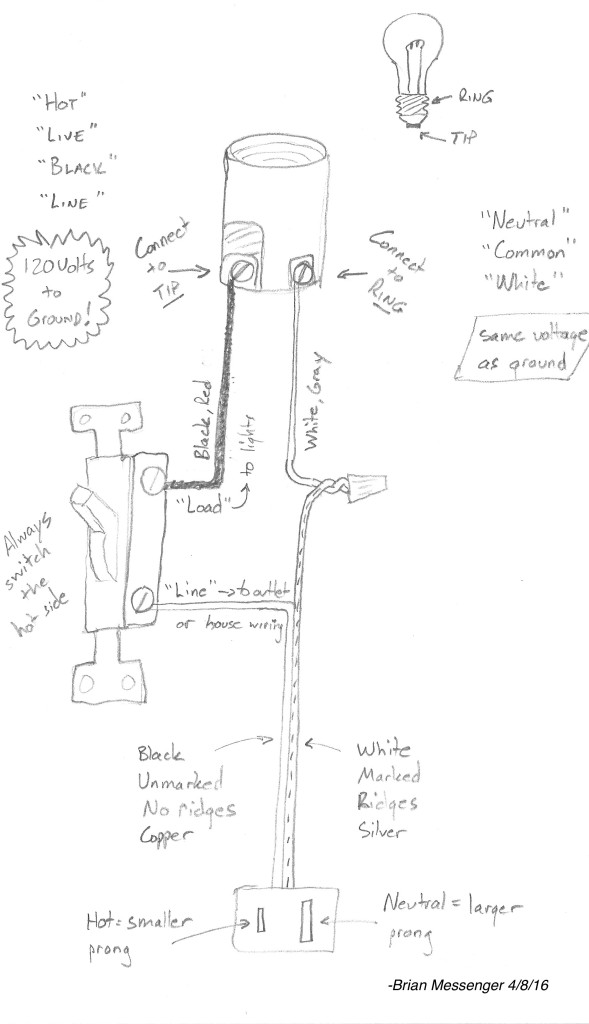 "Hot"
"Live"
"Black"
"Line"
120 Volts
to
Ground!
Ring
Tip
Connect
to
Tip
Connect
to
Ring
"Neutral"
"Common"
"White"
same voltage
as ground
Black, Red
White, Gray
"Load"
to lights
Always
switch
the
hot side
"Line" → to outlet
or house wiring
Black
Unmarked
No ridges
Copper
White
Marked
Ridges
Silver
Hot = smaller
prong
Neutral = larger
prong
-Brian Messenger 4/8/16